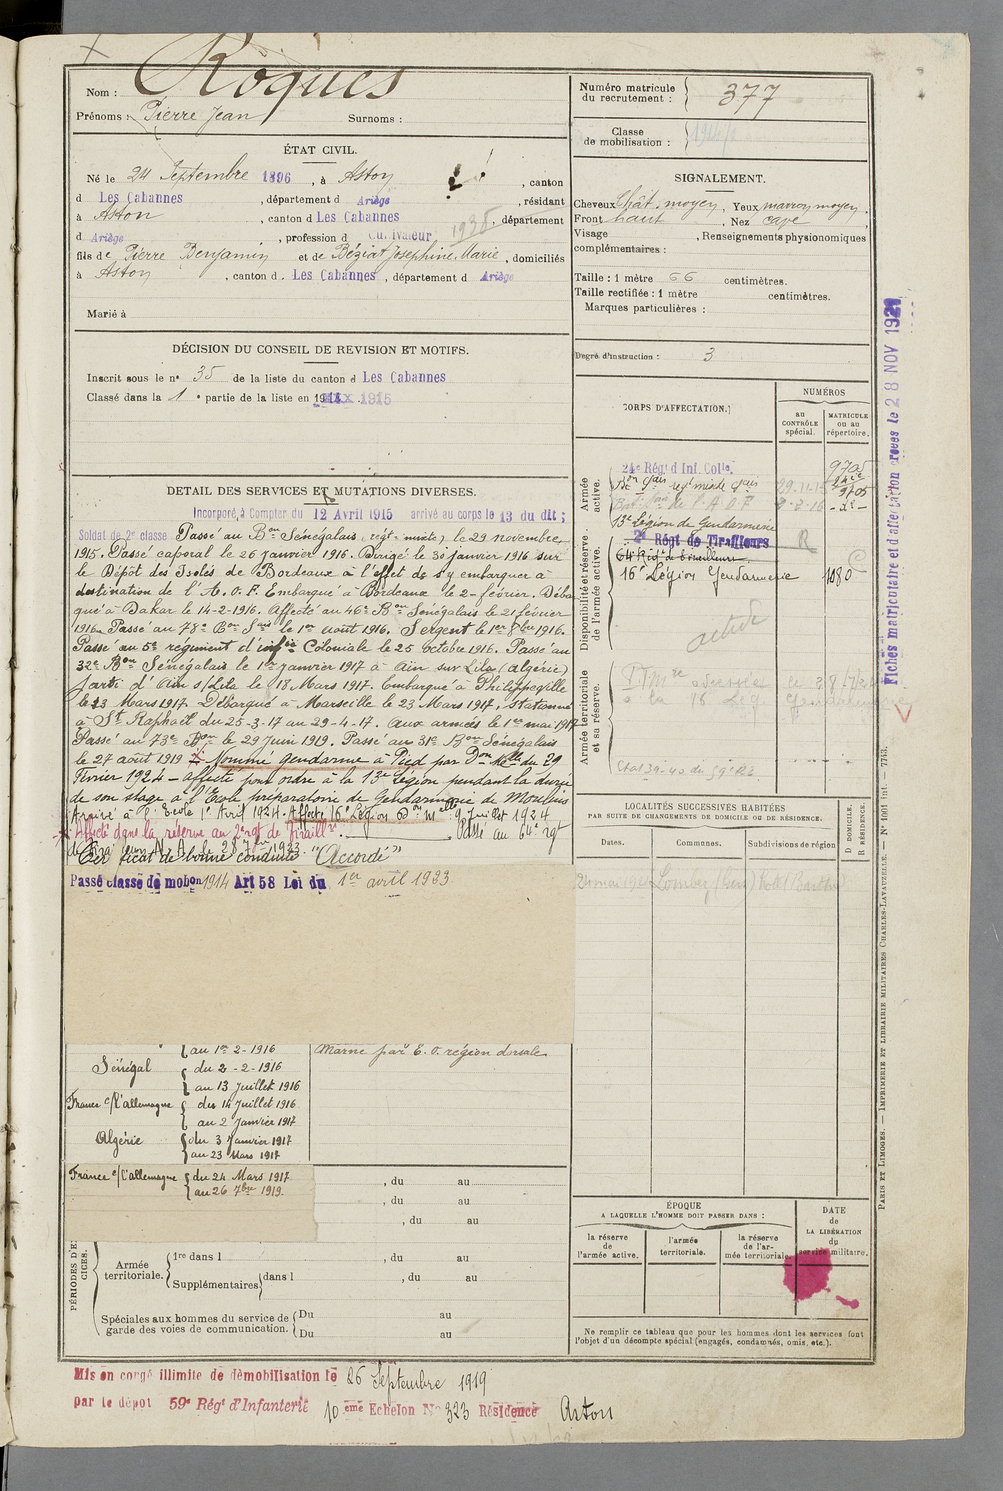 Nom : Roques
Prénoms : Pierre Jean Surnoms :
Numéro matricule
du recrutement : 377
Classe
de mobilisation :
ÉTAT CIVIL.
Né le 24 Septembre 1896, à Aston, canton
d Les Cabannes, département d Ariège, résidant
à Aston, canton d Les Cabannes, département
d Ariège, profession d Cultivateur
1935
fils de Pierre Benjamin et de Béziat Joséphine Marie, domiciliés
à Aston, canton d Les Cabannes, département d Ariège
Marié à
SIGNALEMENT.
Cheveux Chât. moyen, Yeux marron moyen.
Front haut, Nez cave
Visage , Renseignements physionomiques
complémentaires :
Taille : 1 mètre 66 centimètres.
Taille rectifiée : 1 mètre centimètres.
Marques particulières :
Degré d'instruction : 3
DÉCISION DU CONSEIL DE REVISION ET MOTIFS.
Inscrit sous le n° 35 de la liste du canton d Les Cabannes
Classé dans la 1e partie de la liste en 1915
DETAIL DES SERVICES ET MUTATIONS DIVERSES.
Incorporé, à Compter du 12 Avril 1915 arrivé au corps le 13 du dit ;
Soldat de 2e classe Passé au Bon Sénégalais (régt mixte) le 29 novembre
1915. Passé caporal le 26 janvier 1916. Dirigé le 30 janvier 1916 sur
le Dépôt des Isolés de Bordeaux à l'effet de s'y embarquer à
destination de l'A. O. F. Embarqué à Bordeaux le 2 février. Déba
qué à Dakar le 14-2-1916. Affecté au 46e Bon Sénégalais le 21 février
1916. Passé au 78e Bon Sais le 1er août 1916. Sergent le 1er 8bre 1916.
Passé au 5e régiment d'infie Coloniale le 25 octobre 1916. Passé au
32e Bon Sénégalais le 1er janvier 1917 à Aïn sur Lila (Algérie)
Parti d'Aïn s/Lila le 18 Mars 1917. Embarqué à Philippeville
le 23 Mars 1917. Débarqué à Marseille le 23 Mars 1917, stationné
à St Raphaël du 25-3-17 au 29-4-17. Aux armées le 1er mai 1917
Passé au 73e Bon le 29 Juin 1919. Passé au 31e Bon Sénégalais
le 27 août 1919 Nommé gendarme à Pied par Don Mlle du 29
Février 1924 - affecté pour ordre à la 13e région pendant la durée
de son stage à l'École préparatoire de Gendarmerie de Moulins
Arrivé à l'École 1er Avril 1924. Affecté 16e Légion Don Mlle 9 Juillet 1924
Affecté dans la réserve au 2e rgt de Tiraillrs. Passé au 64e rgt
Certificat de bonne conduite "Accordé"
Passé classe de mobon 1914 Art 58 Loi du 1er avril 1923
CORPS D'AFFECTATION.
NUMÉROS
au
CONTRÔLE
spécial.
MATRICULE
ou au
répertoire.
Armée
active.
24e Régt d Inf. Colle. 9705
13e Légion de Gendarmerie
Disponibilité et réserve
de l'armée active.
2e Régt de Tirailleurs R
64e Régt de Tirailleurs
16e Légion Gendarmerie 1080
Armée territoriale
et sa réserve.
LOCALITÉS SUCCESSIVES HABITÉES
PAR SUITE DE CHANGEMENTS DE DOMICILE OU DE RÉSIDENCE.
Dates. Communes. Subdivisions de région
D DOMICILE.
R RÉSIDENCE.
Lombez (Gers)
au 1er 2-1916
Marne par E. O. région dorsale
Sénégal du 2-2-1916
au 13 Juillet 1916
France c/l'allemagne du 14 Juillet 1916
au 2 Janvier 1917
Algérie du 3 Janvier 1917
au 23 Mars 1917
France c/l'allemagne du 24 Mars 1917
au 26 7bre 1919.
, du au
, du au
, du au
Armée
territoriale.
1re dans l , du au
Supplémentaires dans l , du au
Spéciales aux hommes du service de
garde des voies de communication.
Du au
Du au
ÉPOQUE
A LAQUELLE L'HOMME DOIT PASSER DANS :
la réserve
de
l'armée active.
l'armée
territoriale.
la réserve
de l'ar-
mée territoriale.
DATE
de
LA LIBÉRATION
du
service militaire.
Ne remplir ce tableau que pour les hommes dont les services font
l'objet d'un décompte spécial (engagés, condamnés, omis, etc.).
Mis en congé illimité de démobilisation le 26 Septembre 1919
par le dépôt 59e Régt d'Infanterie 10 ème Echelon No 323 Résidence Aston
Fiches matriculaire et d'affectation créées le 28 NOV 1921
PARIS ET LIMOGES. — IMPRIMERIE ET LIBRAIRIE MILITAIRES CHARLES-LAVAUZELLE. — N° 1001 int. — 7753.